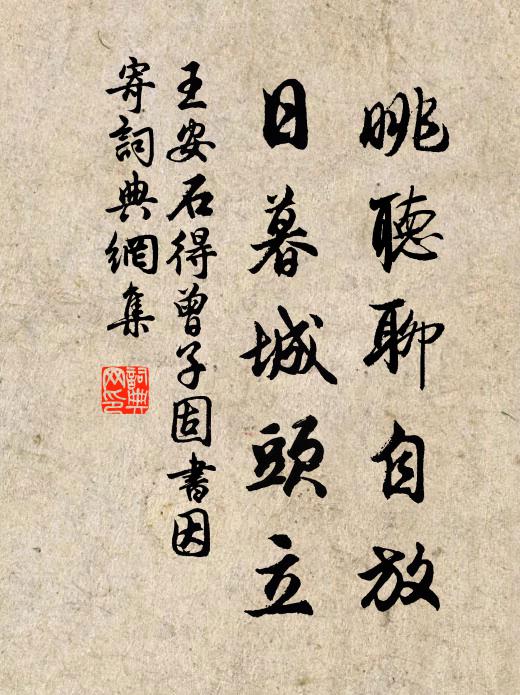 眺聽聊自放
日暮城頭立
王安石得曾子固書因
寄詞典網集
詞典網印